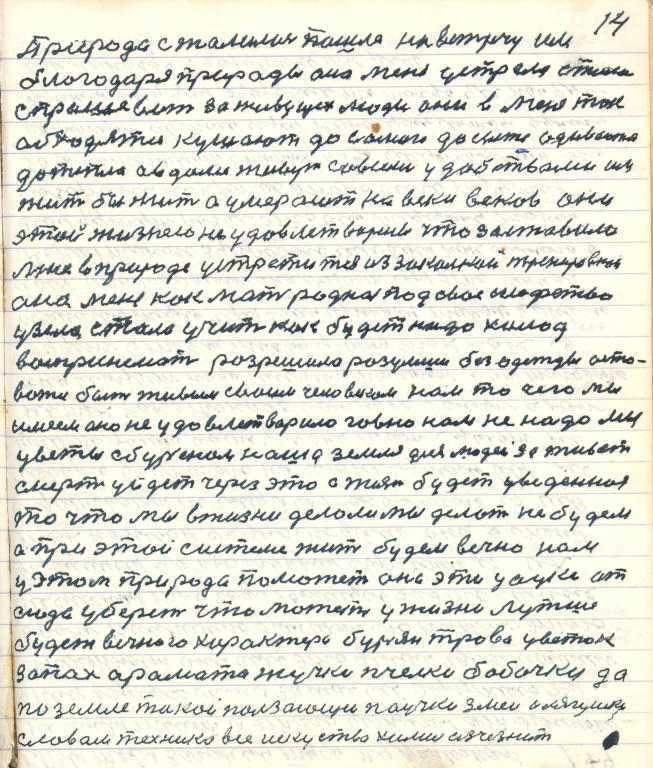 14
Природа с малилии пошла на встречу им
благодаря природы она меня устрела стала
спрашеват за живущих люди они в меня так
абходяти кушают до самого досыта одываются
до тепла в доми живут со всеми удобствами им
жит бы жит а умерают на веки веков они
этой жизнею не удовлетворные что заставило
мне в природе устретится из закалкой тренеровкой
она мене как мат родная под свое шефство
узела стала учит как будет надо холод
вопринемат розрешила розумши без одежды оста-
ватся быт живым своим человеком нам то чего мы
имеем ано не удовлетворило говно нам не надо мы
цветы с бурьяном наша земля для людей заживет
смерт уйдет через это а жизн будет уведенная
то что мы в жизни делали мы делат не будем
а при этой системе жит будем вечно нам
у этом природа поможет она эти уауки от
сюда уберет что может у жизни лутше
будет вечного характера бурян трова цветок
запах аромата жучки пчелки бабочки да
по земле такойползающи паучки змеи а лягушки
словам техника все искуства химии изчезнит